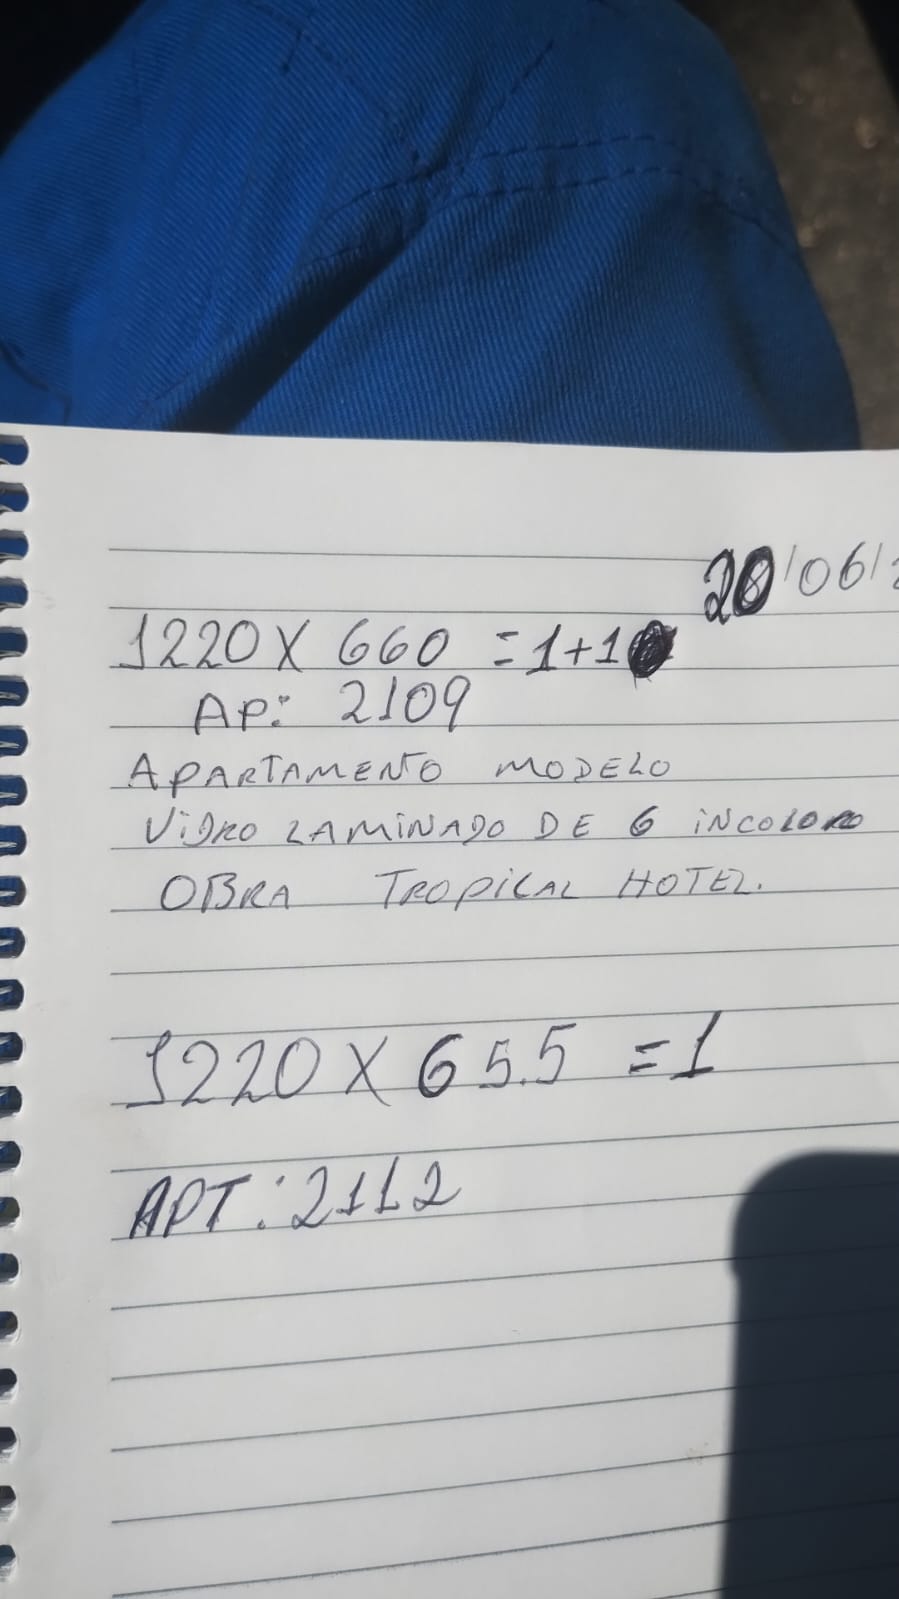 20/06/2
1220 X 660 = 1+1
AP: 2109
APARTAMENTO MODELO
VIDRO LAMINADO DE 6 INCOLORO
OBRA TROPICAL HOTEL.
1220 X 65.5 = 1
APT: 2112